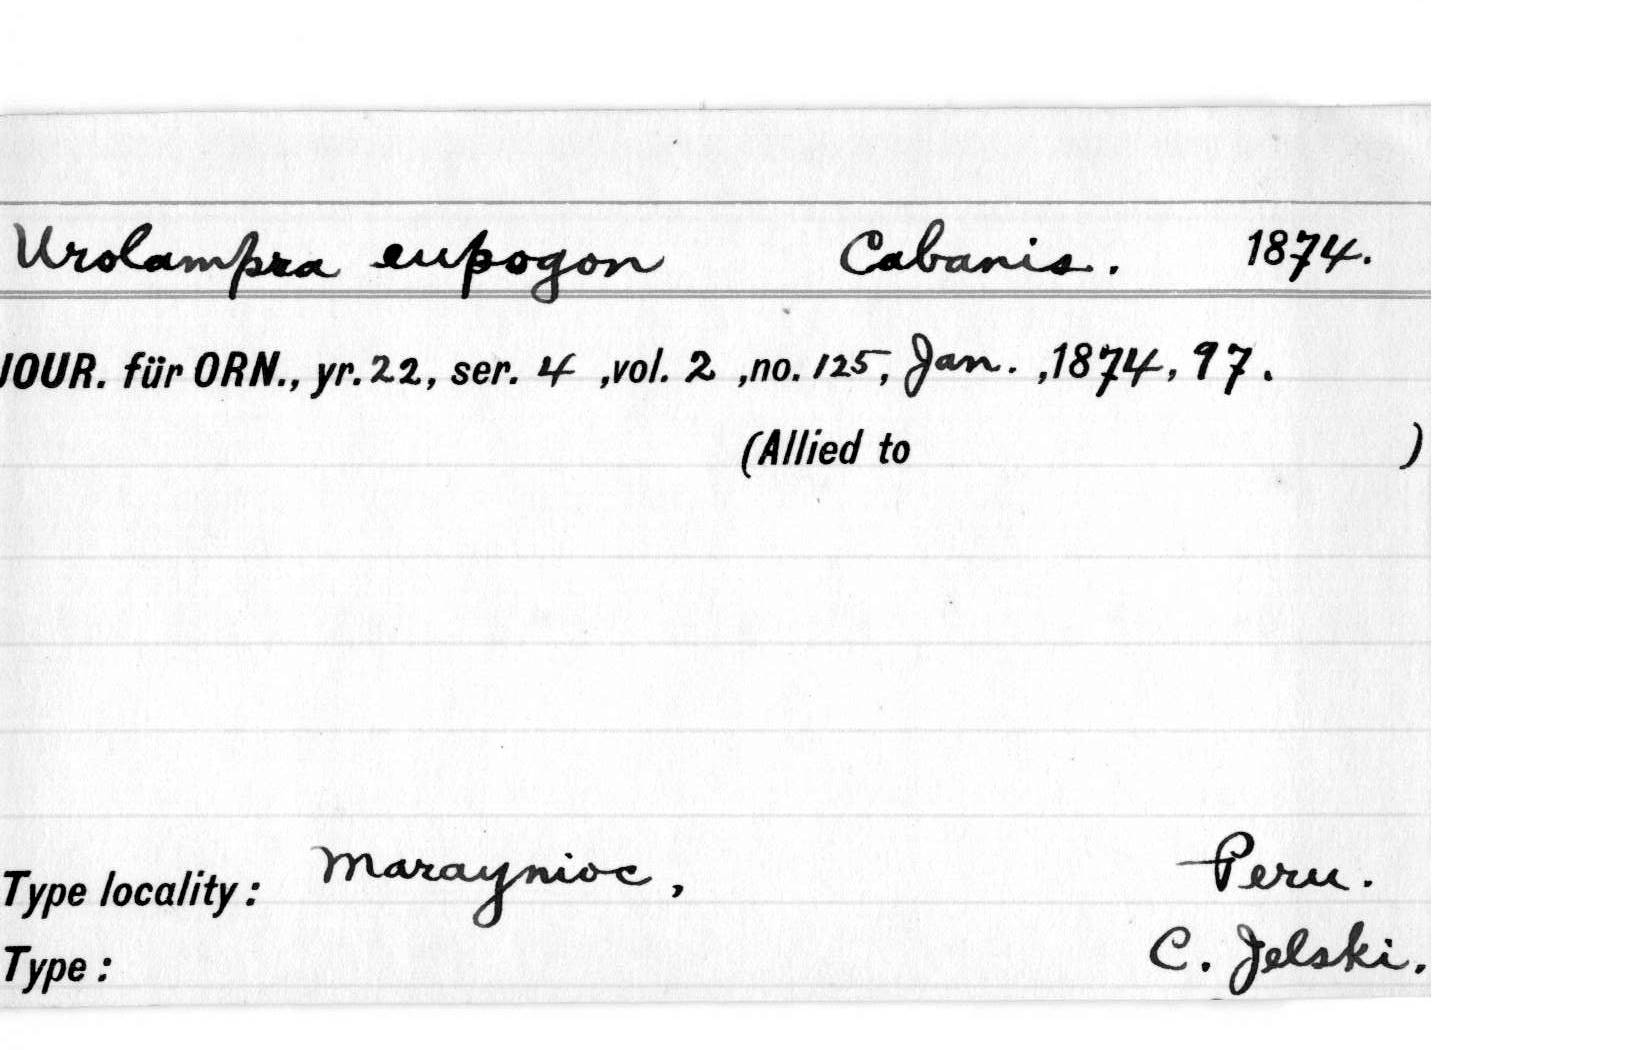 Urolampra eupogon Cabanis. 1874.
JOUR. für ORN., yr. 22, ser. 4 ,vol. 2 ,no. 125, Jan. ,1874, 97.
(Allied to )
Type locality: Maraynioc, Peru.
Type: C. Jelski.